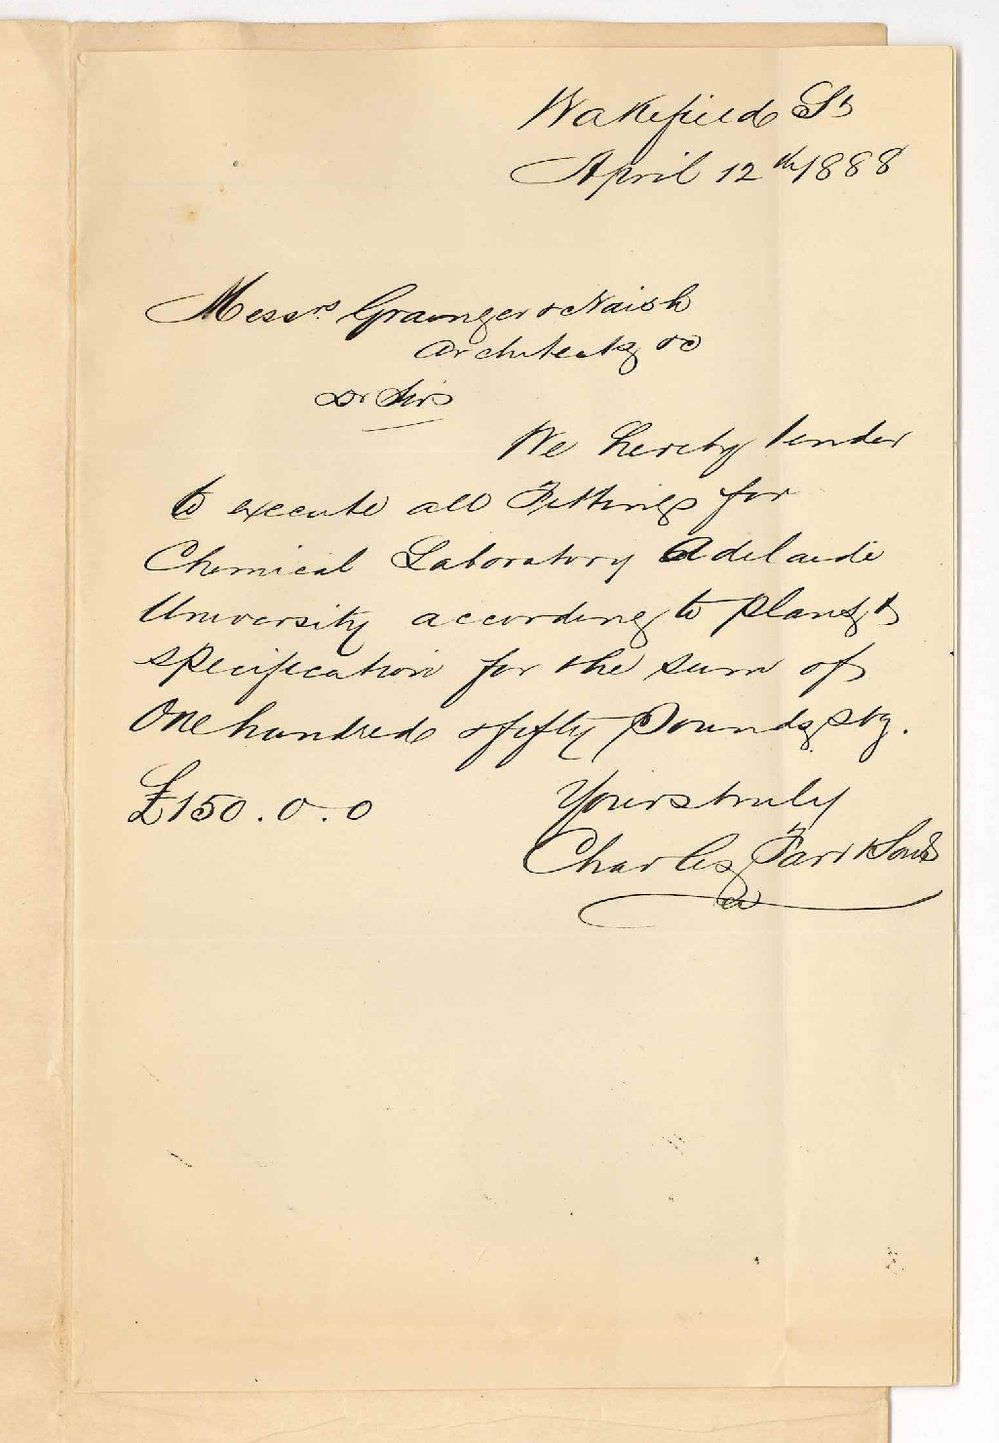 Wakefield St
April 12th 1888
Messrs Grainger & Naish
Architects &c
Dr Sirs
We hereby tender
to execute all Fittings for
Chemical Laboratory Adelaide
University according to plans &
specification for the sum of
One hundred & fifty Pounds stg.
£150.0.0
Yours truly
Charles Farr & Sons